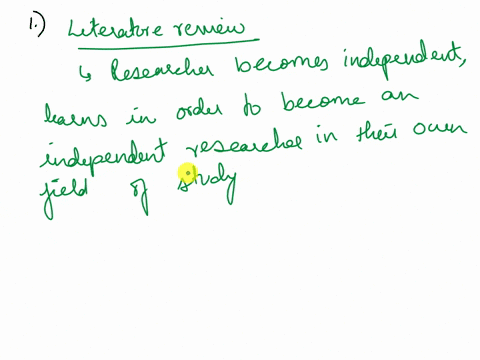 1.) Literature review
↳ Researcher becomes independent,
learns in order to become an
independent researcher in their own
field of study